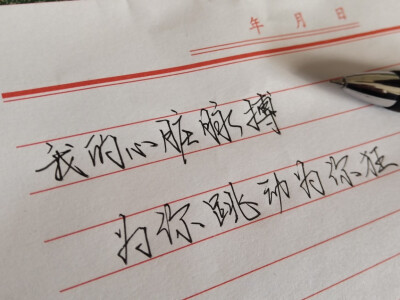 年 月 日
我的心脏脉搏
为你跳动为你狂